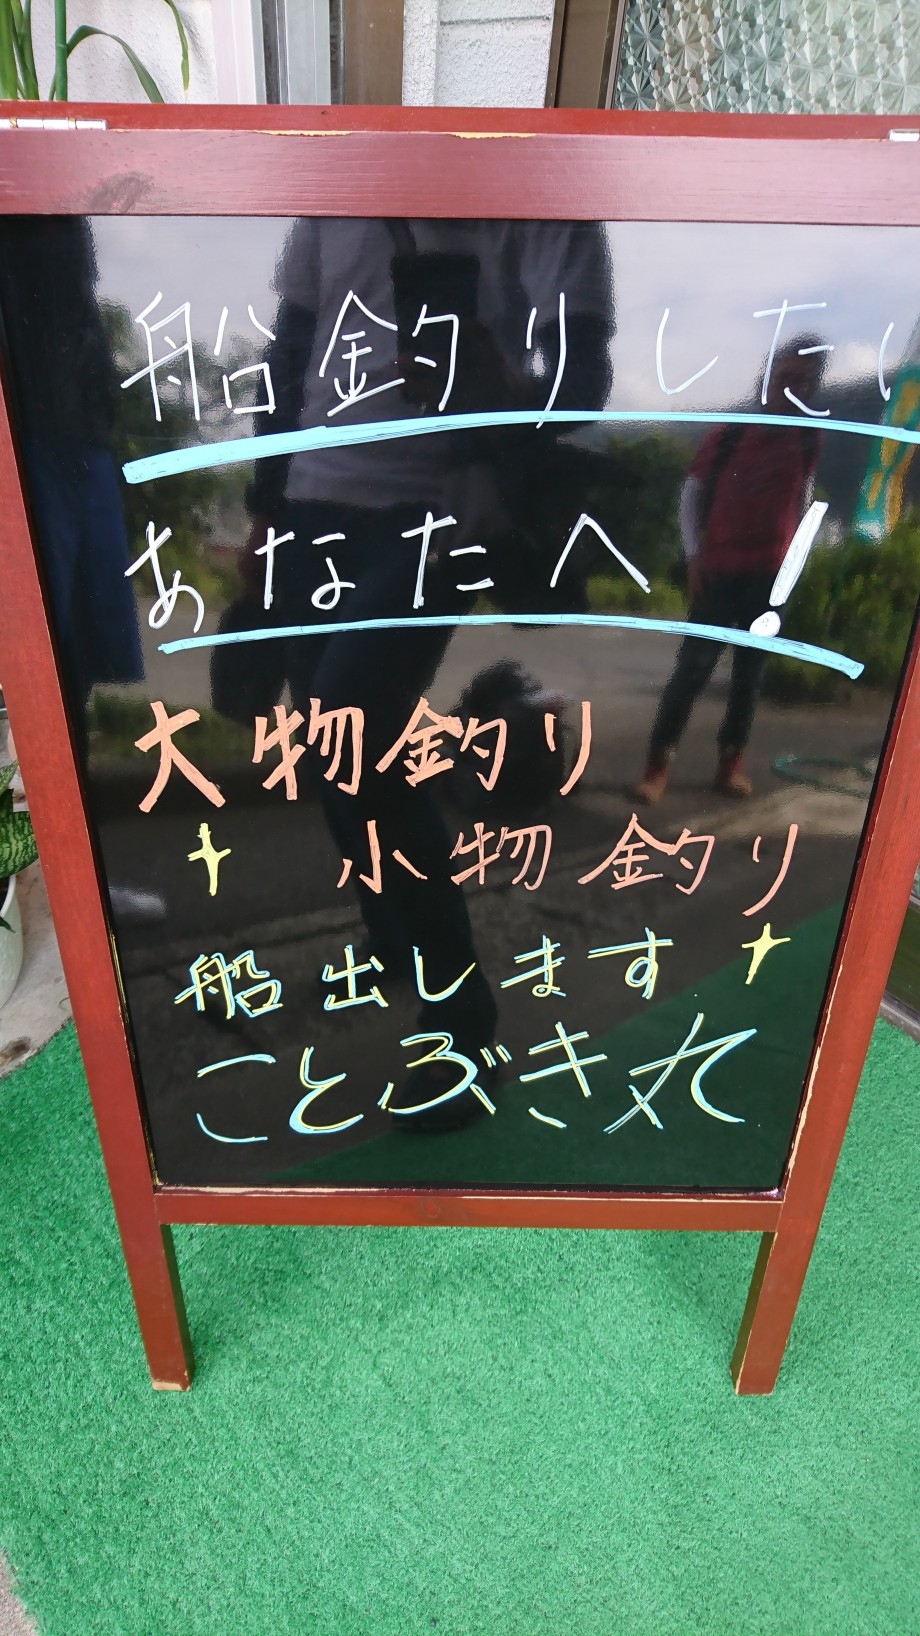 船釣りしたい
あなたへ!
大物釣り
小物釣り
船出します
ことぶき丸